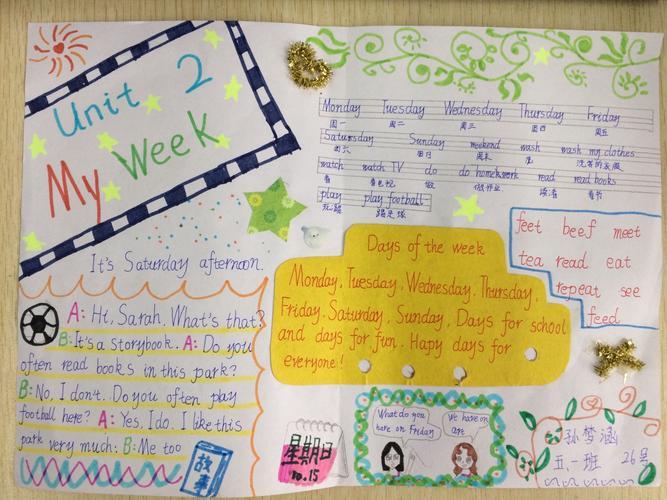 Unit 2
My Week
Monday Tuesday Wednesday Thursday Friday
周一 周二 周三 周四 周五
Saturday Sunday weekend wash wash my clothes
周六 周日 周末 洗 洗我的衣服
watch watch TV do do homework read read books
看 看电视 做 做作业 读 看书
play play football
玩 踢足球
feet beef meet
tea read eat
repeat see
feed
Days of the week
Monday, Tuesday, Wednesday, Thursday,
Friday, Saturday, Sunday, Days for school
and days for fun. Hapy days for
everyone!
It's Saturday afternoon.
A: Hi, Sarah. What's that?
B: It's a storybook. A: Do you
often read books in this park?
B: No, I don't. Do you often play
football here? A: Yes. I do. I like this
park very much. B: Me too
故事
星期日
10.15
What do you
have on Friday
We have an
art
孙梦涵
五、一班 26号